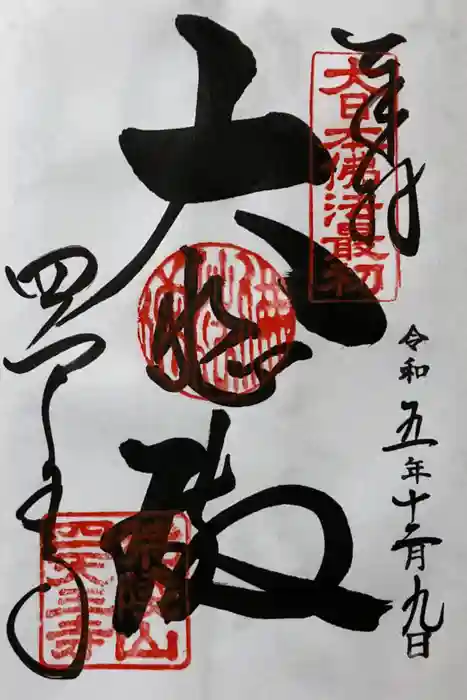 奉拝
大日本佛法最初
令和五年十二月九日
大悲殿
四天王寺
荒陵山
四天王寺